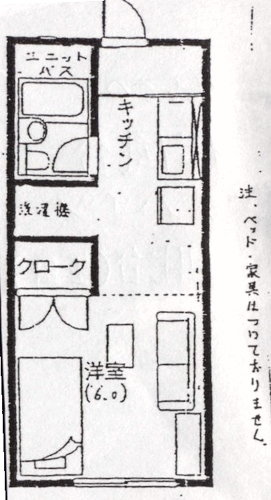 ユニット
バス
キッチン
洗濯機
クローク
洋室
(6.0)
注、ベッド・家具はついておりません。